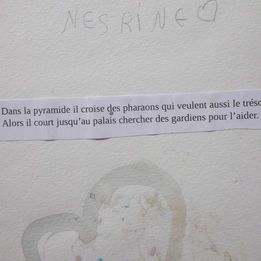 NESRINE
Dans la pyramide il croise des pharaons qui veulent aussi le tréso
Alors il court jusqu'au palais chercher des gardiens pour l'aider.